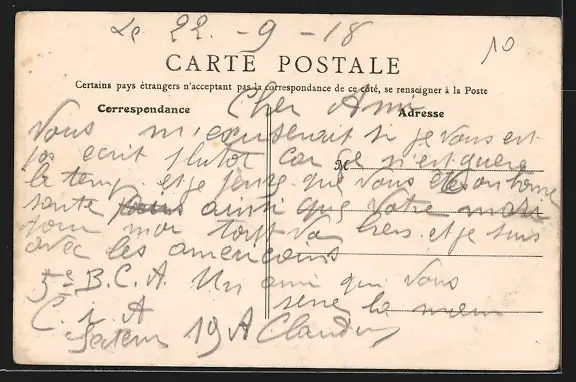 Le 22 - 9 - 18
10
CARTE POSTALE
Certains pays étrangers n'acceptant pas la correspondance de ce côté, se renseigner à la Poste
Correspondance
Adresse
Cher Ami
Vous m'excuserait si je vous est
pas ecrit plutot car ce n'est guere
le temp et je pense que vous etes en bonne
sante ainsi que votre
pour moi tout va bien et je suis
avec les americains
5e B.C.A. Un ami qui vous
serre la main
C. i. A
Secteur 19 A